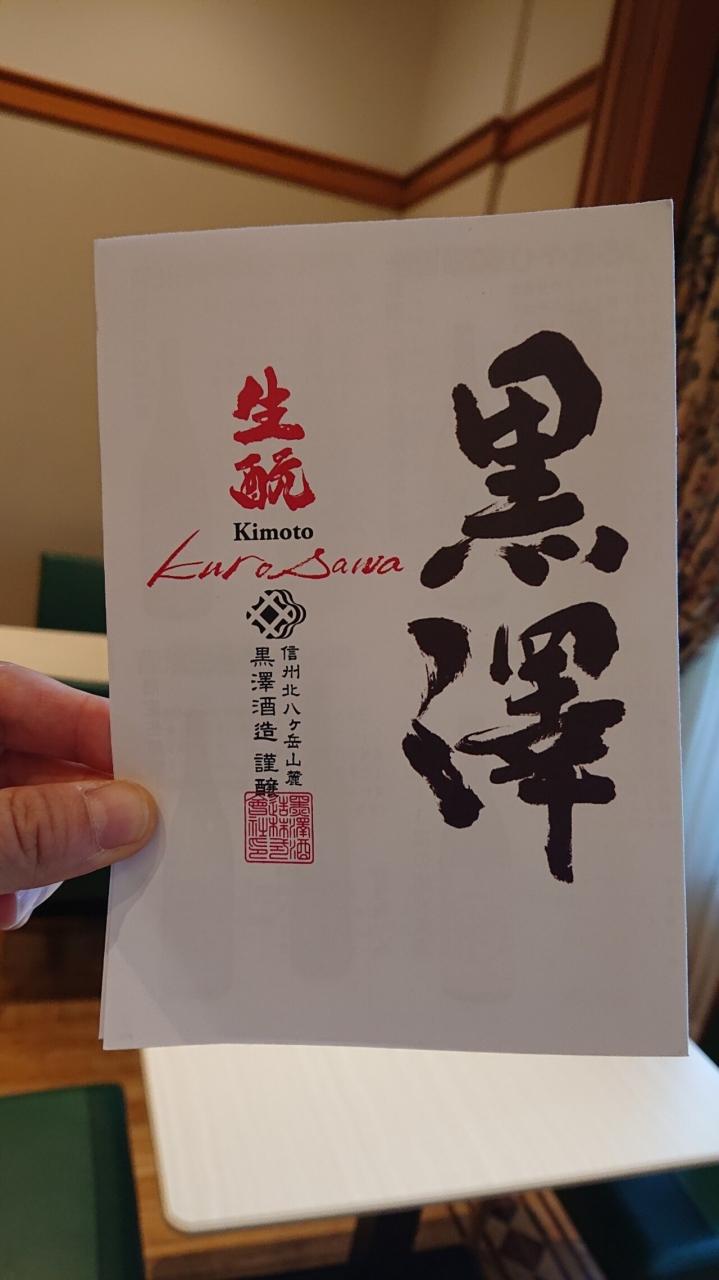 黒澤
生酛
Kimoto
kurosawa
信州北八ヶ岳山麓
黒澤酒造 謹醸
黒澤酒
造株式
會社之印